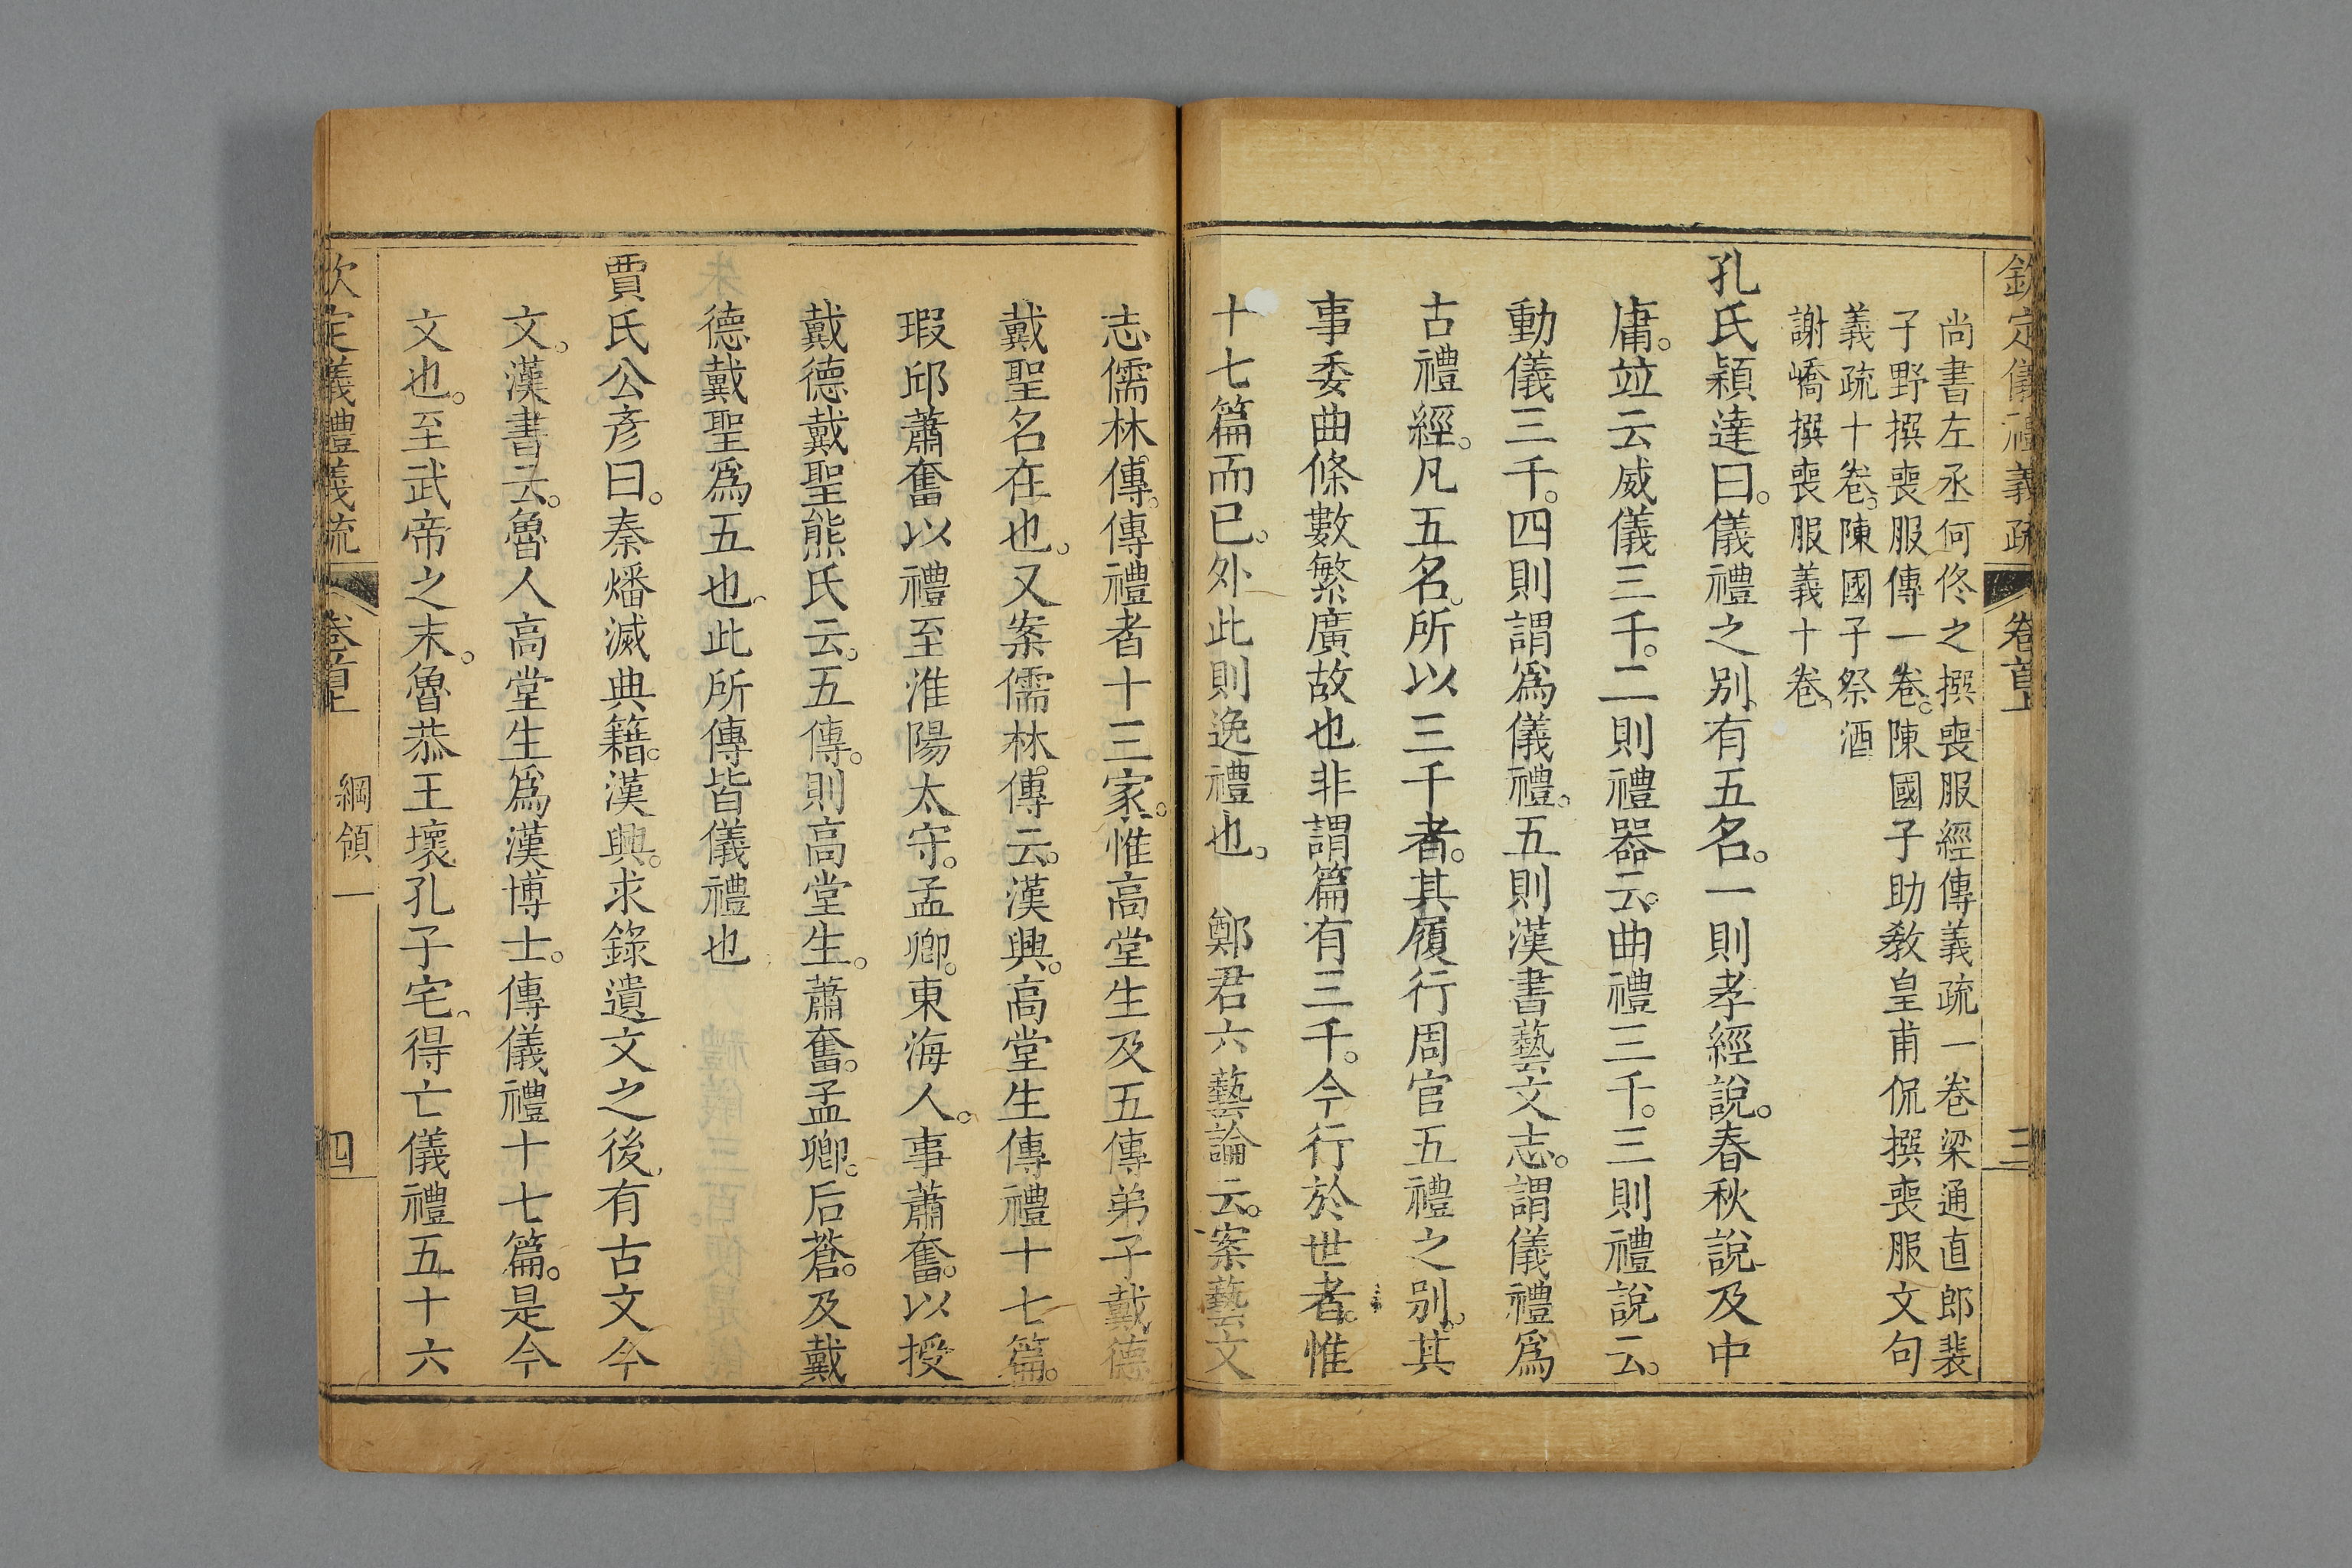 欽定儀禮義疏 卷首上 三
尚書左丞何佟之撰喪服經傳義疏一卷梁通直郎裴
子野撰喪服傳一卷。陳國子助教皇甫侃撰喪服文句
義疏十卷。陳國子祭酒
謝嶠撰喪服義十卷、
孔氏穎達曰。儀禮之別、有五名。一則孝經說。春秋說及中
庸。竝云威儀三千。二則禮器云。曲禮三千。三則禮說云。
動儀三千。四則謂爲儀禮。五則漢書藝文志。謂儀禮爲
古禮經。凡五名、所以三千者。其履行周官五禮之別。其
事委曲條數繁廣故也非謂篇有三千。今行於世者。惟
十七篇而已。外此則逸禮也。 鄭君六藝論云。案藝文
志儒林傳。傳禮者十三家。惟高堂生及五傳弟子戴德
戴聖名在也。又案儒林傳云。漢興。高堂生傳禮十七篇。
瑕邱蕭奮以禮至淮陽太守。孟卿。東海人。事蕭奮。以授
戴德戴聖熊氏云。五傳。則高堂生。蕭奮。孟卿。后蒼。及戴
德戴聖爲五也、此所傳皆儀禮也
賈氏公彥曰。秦燔滅典籍。漢興。求錄遺文之後、有古文今
文。漢書云。魯人高堂生爲漢博士。傳儀禮十七篇。是今
文也。至武帝之末。魯恭王壞孔子宅、得亡儀禮五十六
欽定儀禮義疏 卷首上 綱領一 四